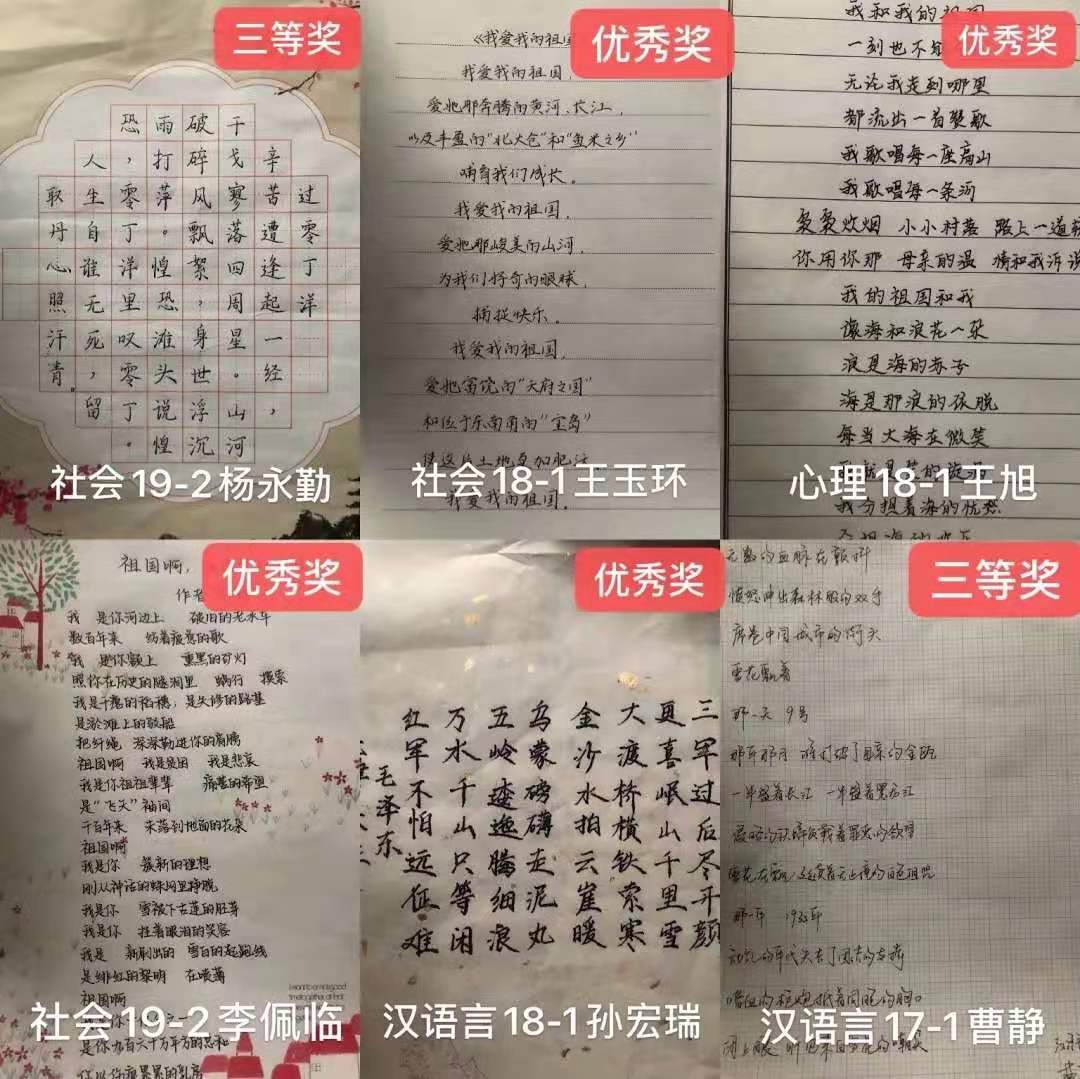 三等奖
过零丁洋
辛苦遭逢起一经,
干戈寥落四周星。山河
破碎风飘絮,身世浮沉
雨打萍。惶恐滩头说惶
恐,零丁洋里叹零丁。
人生自谁无死,留
取丹心照汗青。
社会19-2杨永勤
优秀奖
《我爱我的祖国
我爱我的祖国,
爱她那奔腾的黄河、长江,
以及丰盈的“北大仓”和“鱼米之乡”
哺育我们成长。
我爱我的祖国,
爱她那峻美的山河,
为我们好奇的眼球,
捕捉快乐。
我爱我的祖国,
爱她富饶的“天府之国”
和位于东南角的“宝岛”
使这片土地更加肥沃
我爱我的祖国.
社会18-1王玉环
优秀奖
我和我的祖国
一刻也不能
无论我走到哪里
都流出一首赞歌
我歌唱每一座高山
我歌唱每一条河
袅袅炊烟 小小村落 路上一道
你用你那 母亲的温 情和我诉说
我的祖国和我
像海和浪花一朵
浪是海的赤子
海是那浪的依脱
每当大海在微笑
我分担着海的忧愁
心理18-1王旭
优秀奖
祖国啊,
作者
我 是你河边上 破旧的老水车
数百年来 纺着疲惫的歌
我 是你额上 熏黑的矿灯
照你在历史的隧洞里 蜗行 摸索
我是干瘪的稻穗,是失修的路基
是淤滩上的驳船
把纤绳 深深勒进你的肩膊
祖国啊 我是贫困 我是悲哀
我是你祖祖辈辈 痛苦的希望
是“飞天”袖间
千百年来 未落到地面的花朵
祖国啊
我是你 簇新的理想
刚从神话的蛛网里挣脱
我是你 雪被下古莲的胚芽
我是你 挂着眼泪的笑窝
我是 新刷出的 雪白的起跑线
是绯红的黎明 在喷薄
祖国啊
是你九百六十万平方的总和
你以伤痕累累的乳房
社会19-2李佩临
优秀奖
毛泽东
红军不怕远征难
万水千山只等闲
五岭逶迤腾细浪
乌蒙磅礴走泥丸
金沙水拍云崖暖
大渡桥横铁索寒
更喜岷山千里雪
三军过后尽开颜
汉语言18-1孙宏瑞
三等奖
无数的血脉在
愤怒冲出森林般的双手
席卷中国城市的街头
雪花飘着
那一天 9号
一半盛着长江 一半盛着黑龙江
那一年 1935年
汉语言17-1曹静